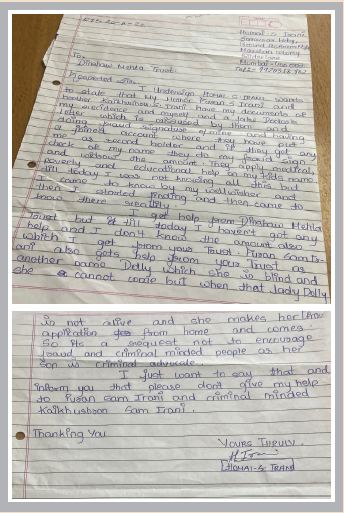 Homai-S Irani
Mumbai-
To,
Dinshaw Mehta Trust.
Respected Sir,
I Undersign Homai S Irani wants
to state that My Mother Puran S Irani and
brother Kaikhushroo S Irani have my documents of
my residence and myself and a fake Doctor's
letter which is misused by them and
doing fraud signature of mine and having
a joined account where they have put
me as second holder and if they get any
check of my name they do my fraud sign
and withdraw the amount. They apply medical,
poverty and educational help in my kids name
till today I was not knowing all this but
I came to know by my wellwisher and
then I started finding and then came to
know there reality.
I get help from Dinshaw Mehta
Trust but till today I haven't got any
help and I don't know the amount also
which I get from your Trust. Puran Sam Ir-
ani also gets help from your Trust as
another name Dolly which she is blind and
she cannot come but when that lady Dolly
is not alive and she makes her
application from home and comes.
So its a request not to encourage
fraud and criminal minded people as her
son is criminal advocate.
I just want to say that and
inform you that please don't give my help
to Puran Sam Irani and criminal minded
Kaikhushroo Sam Irani.
Thanking You
YOURS TRULY.
HOMAI-S IRANI